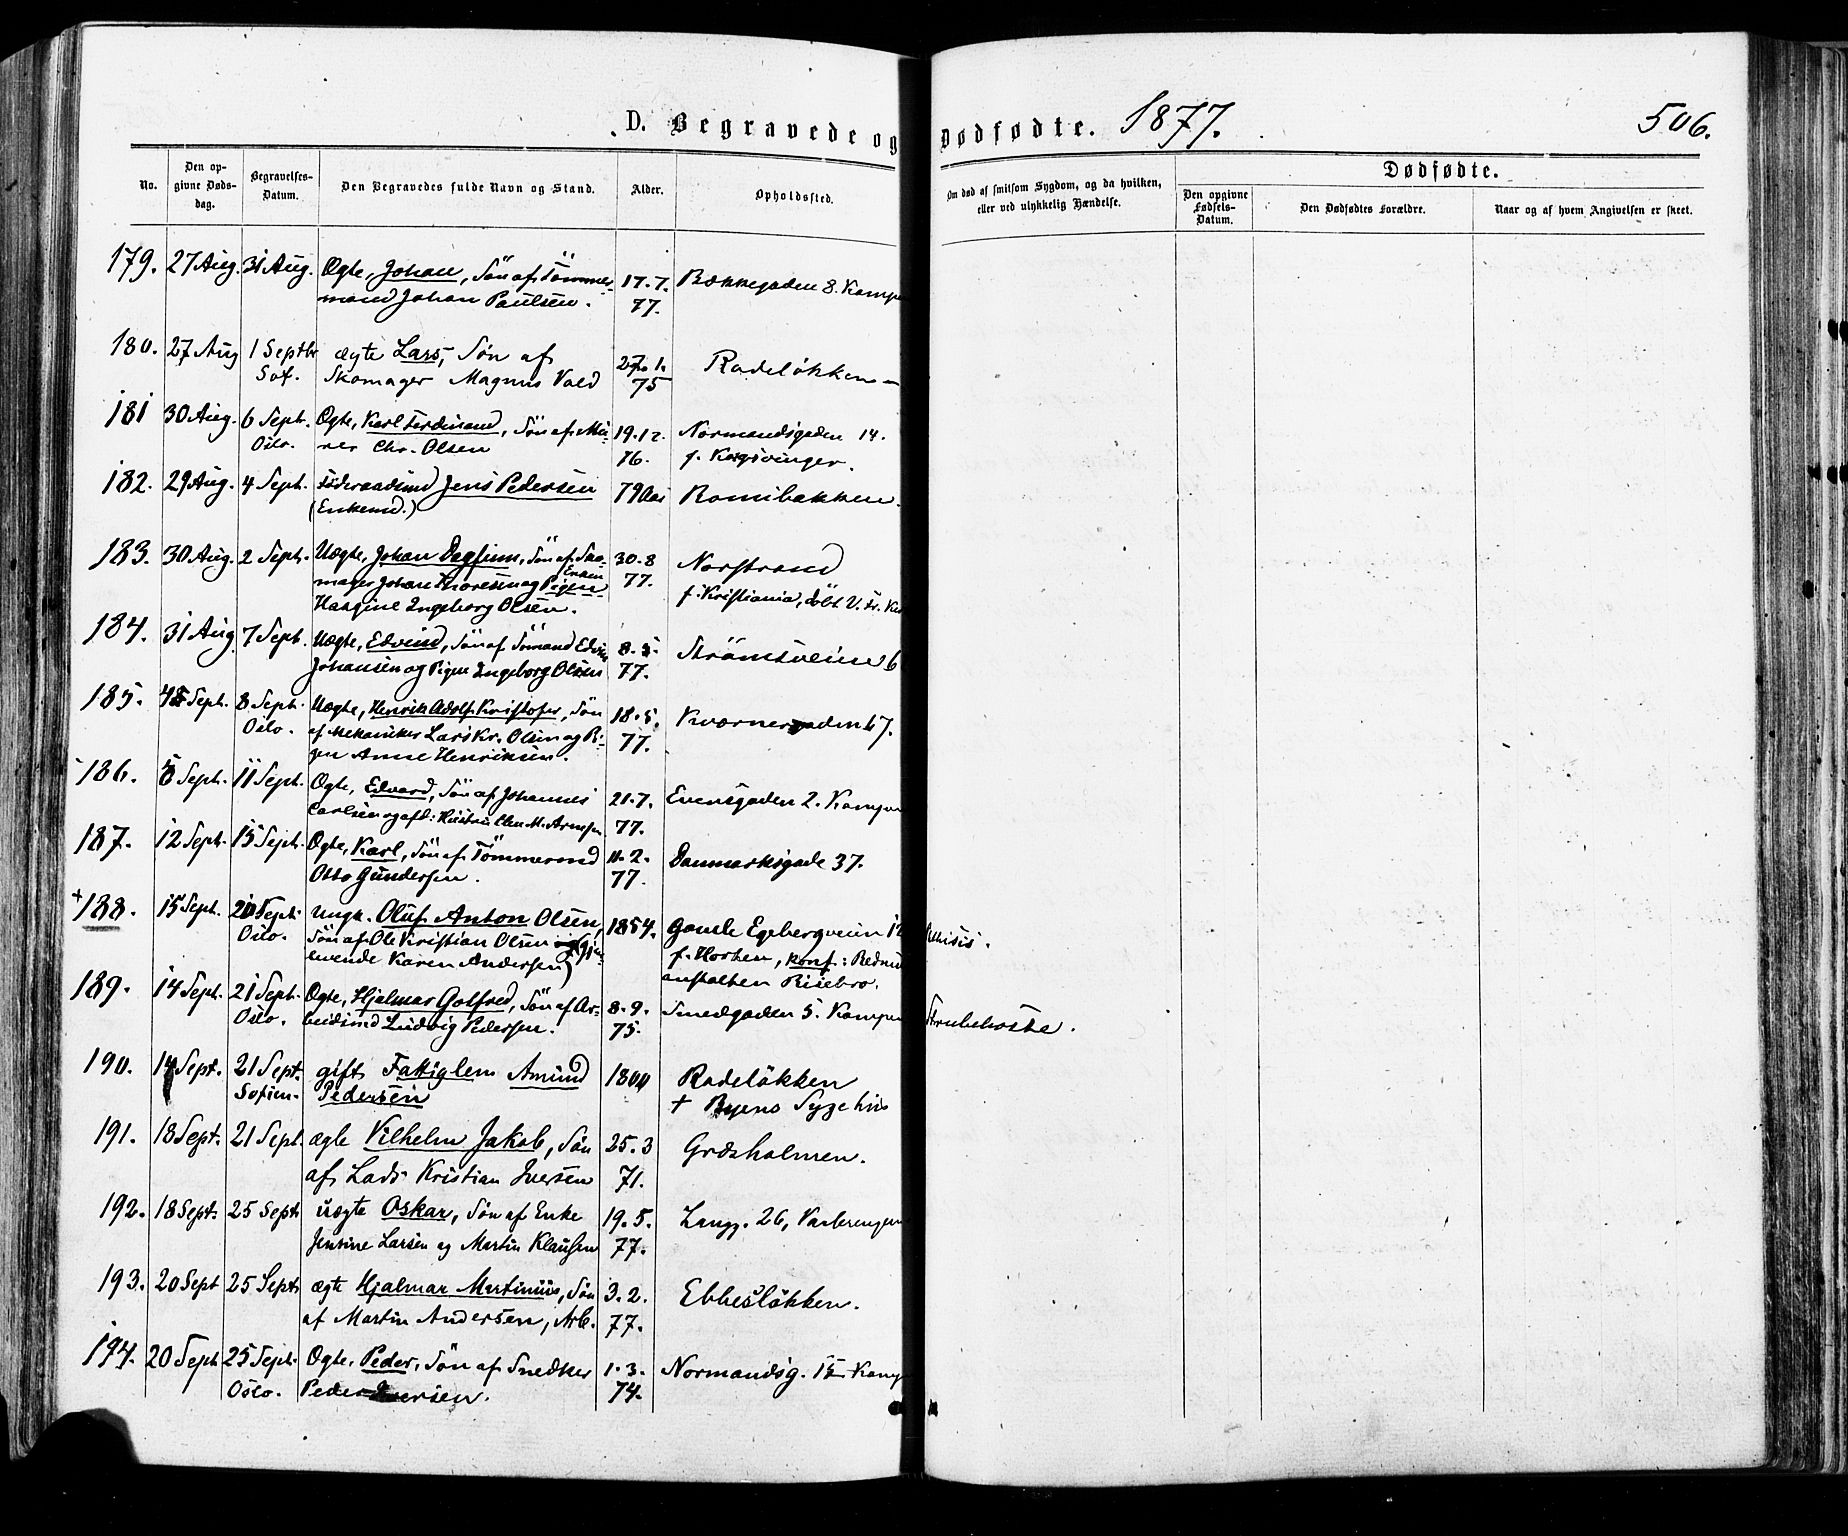 D. Begravede og Dødfødte. 1877. 506.
No. Den opgivne Døds-dag. Begravelses-Datum. Den Begravedes fulde Navn og Stand. Alder. Opholdssted. Om død af smitsom Sygdom, og da hvilken, eller ved ulykkelig Hændelse. Dødfødte. Den opgivne Fødsels-Datum. Den Dødfødtes Forældre. Naar og af hvem Angivelsen er skeet.
179. 27 Aug. 31 Aug. Ægte, Johan, Søn af Tømmer- 17.7. Bækkegaden 8. Kampe
mand Johan Paulsen. 77.
180. 27 Aug 1 Septbr ægte Lars, Søn af 27. 1. Rodeløkken
Sof. Skomager Magnus Vold 75
181 30 Aug. 6 Sept. Ægte, Karl Ferdinand, Søn af Mu- 19.12 Normandsgaden 14.
Oslo. rer Chr. Olsen 76. f. Kongsvinger.
182. 29 Aug. 4 Sept. Føderaadsmd Jens Pedersen 79 Aar Bomibakken.
(Enkemd.)
183. 30 Aug. 2 Sept. Uægte, Johan Dagfinn, Søn af Sko- 30.8 Norstrand
mager Johan Thoresen og Enken Pigen 77. f. Kristiania, døbt V. Fr. K
Haagine Ingeborg Olsen.
184. 31 Aug 7 Sept. Uægte, Edvind, Søn af Sømand Edvin 8.5 Strømsveien 6
Johansen og Pigen Ingeborg Olsen 77.
185. 5 Sept. 8 Sept. Uægte, Henrik Adolf Kristofer, Søn 18.5. Kværnergaden 17.
Oslo. af Mekaniker Lars Kr. Olsen og Pi- 77.
gen Anne Henriksen.
186. 5 Sept. 11 Sept. Ægte, Edvard, Søn af Johannes 21.7. Evensgaden 2. Kampen
Carlsen og afd: Hustru Elen M. Arnesen 77.
187. 12 Sept. 15 Sept. Ægte, Karl, Søn af Tømmermd 11.2. Danmarksgade 37.
Otto Gundersen. 77.
+188. 15 Sept. 20 Sept. Ungk. Oluf Anton Olsen, 1854. Gamle Egebergveien 12
Oslo. Søn af Ole Kristian Olsen og (gjen- f. Horten, konf: Rednings
levende Karen Andersen) anstalten Risebro.
189. 14 Sept. 21 Sept. Ægte, Hjalmar Gotfred, Søn af Ar- 8.9. Smedgaden 5. Kampen Strubehoste.
Oslo. beidsmd Ludvig Pedersen. 75.
190. 14 Sept. 21 Sept. gift Fattiglem Amund 1800 Rodeløkken
Sofien. Pedersen + Byens Sygehus
191. 18 Sept. 21 Sept. ægte Vilhelm Jakob, Søn 25.3 Græsholmen.
af Lods Kristian Iversen 71.
192. 18 Sept. 25 Sept uægte Oskar, Søn af Enke 19.5. Langg. 26, Vaalerengen
Jensine Larsen og Martin Klausen 77.
193. 20 Sept 25 Sept ægte Hjalmar Martinius, Søn 3.2. Ebbesløkken.
af Martin Andersen, Arb. 77.
194. 20 Sept 25 Sept. Ægte, Peder, Søn af Snedker 1.3. Normandsg. 15 Kamp
Oslo. Peder Iversen. 74.